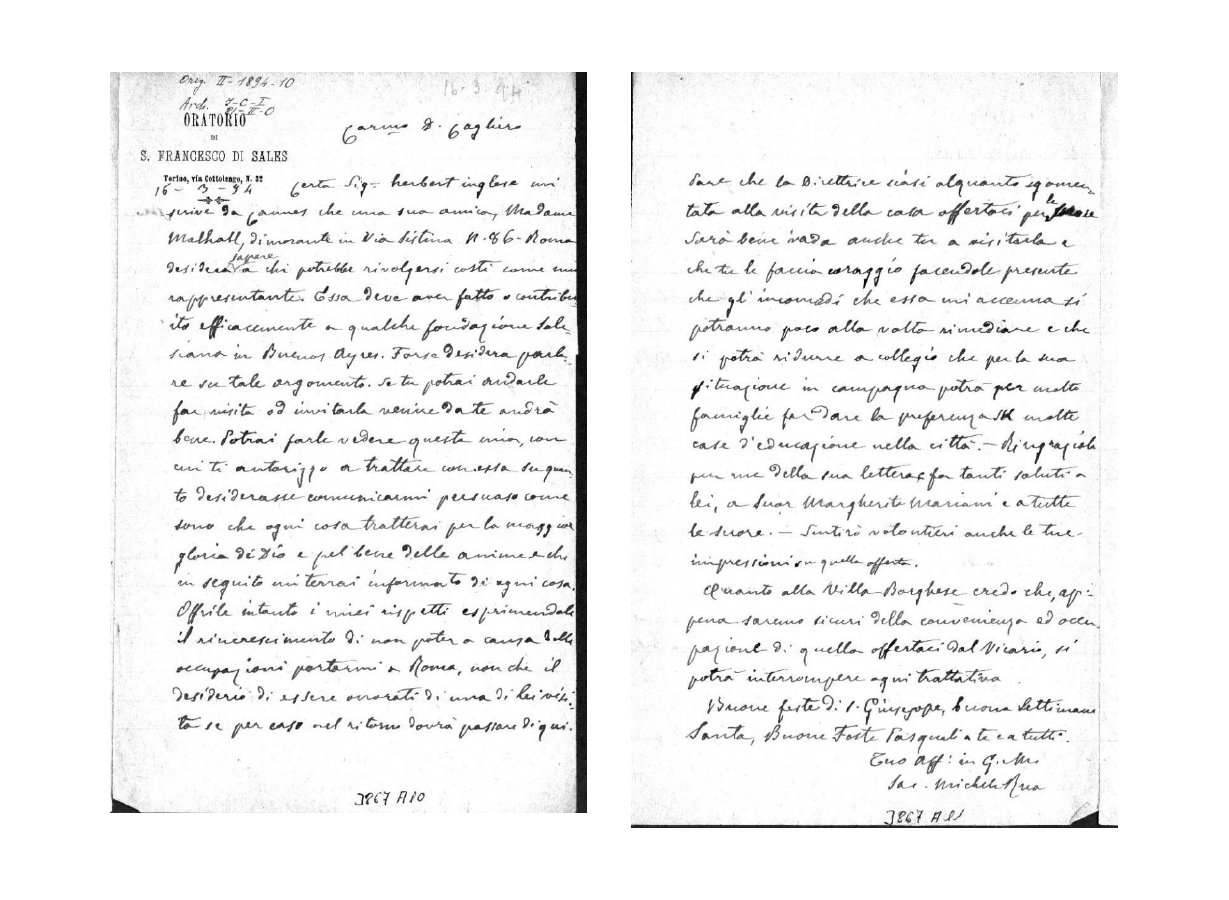 Orig. II-1894-10
16-3-94
Arch. S-C-I
ORATORIO
DI
S. FRANCESCO DI SALES
Torino, via Cottolengo, N. 32
16-3-94
Carmo D. Cagliero
Certa Sigra herbert inglese mi
scrive da Cannes che una sua amica, Madame
Malhall, dimorante in Via Sistina N. 86 - Roma
sapere
desidera a chi potrebbe rivolgersi costì come mio
rappresentante. Essa deve aver fatto o contribu-
ito efficacemente a qualche fondazione Sale-
siana in Buenos Ayres. Forse desidera parla-
re su tale argomento. Se tu potrai andarle
far visita od invitarla venire da te andrà
bene. Potrai farle vedere questa mia, con
cui ti autorizzo a trattare con essa su quan-
to desiderasse comunicarmi persuaso come
sono che ogni cosa tratterai per la maggior
gloria di Dio e pel bene delle anime e che
in seguito mi terrai informato di ogni cosa.
Offrile intanto i miei rispetti esprimendole
il rincrescimento di non poter a causa delle
occupazioni portarmi a Roma, non che il
desiderio di essere onorati di una di lei visi-
ta se per caso nel ritorno dovrà passare di qui.
J867 A10
Pare che la Direttrice siasi alquanto sgomen-
tata alla visita della casa offertaci per le suore
Sarà bene vada anche tu a visitarla e
che tu le faccia coraggio facendole presente
che gl'incomodi che essa mi accenna si
potranno poco alla volta rimediare e che
si potrà ridurre a collegio che per la sua
situazione in campagna potrà per molte
famiglie far dare la preferenza su molte
case d'educazione nella città. - Ringraziala
per me della sua lettera e fa tanti saluti a
lei, a Suor Margherita Mariani e a tutte
le suore. - Sentirò volontieri anche le tue
impressioni su quelle offerte.
Quanto alla Villa Borghese credo che, ap-
pena saremo sicuri della convenienza ed occu-
pazione di quella offertaci dal Vicario, si
potrà interrompere ogni trattativa.
Buone feste di S. Giuseppe, buona Settimana
Santa, Buone Feste Pasquali a te e a tutti.
Tuo Aff: in G. M.
Sac. Michele Rua
J867 A11